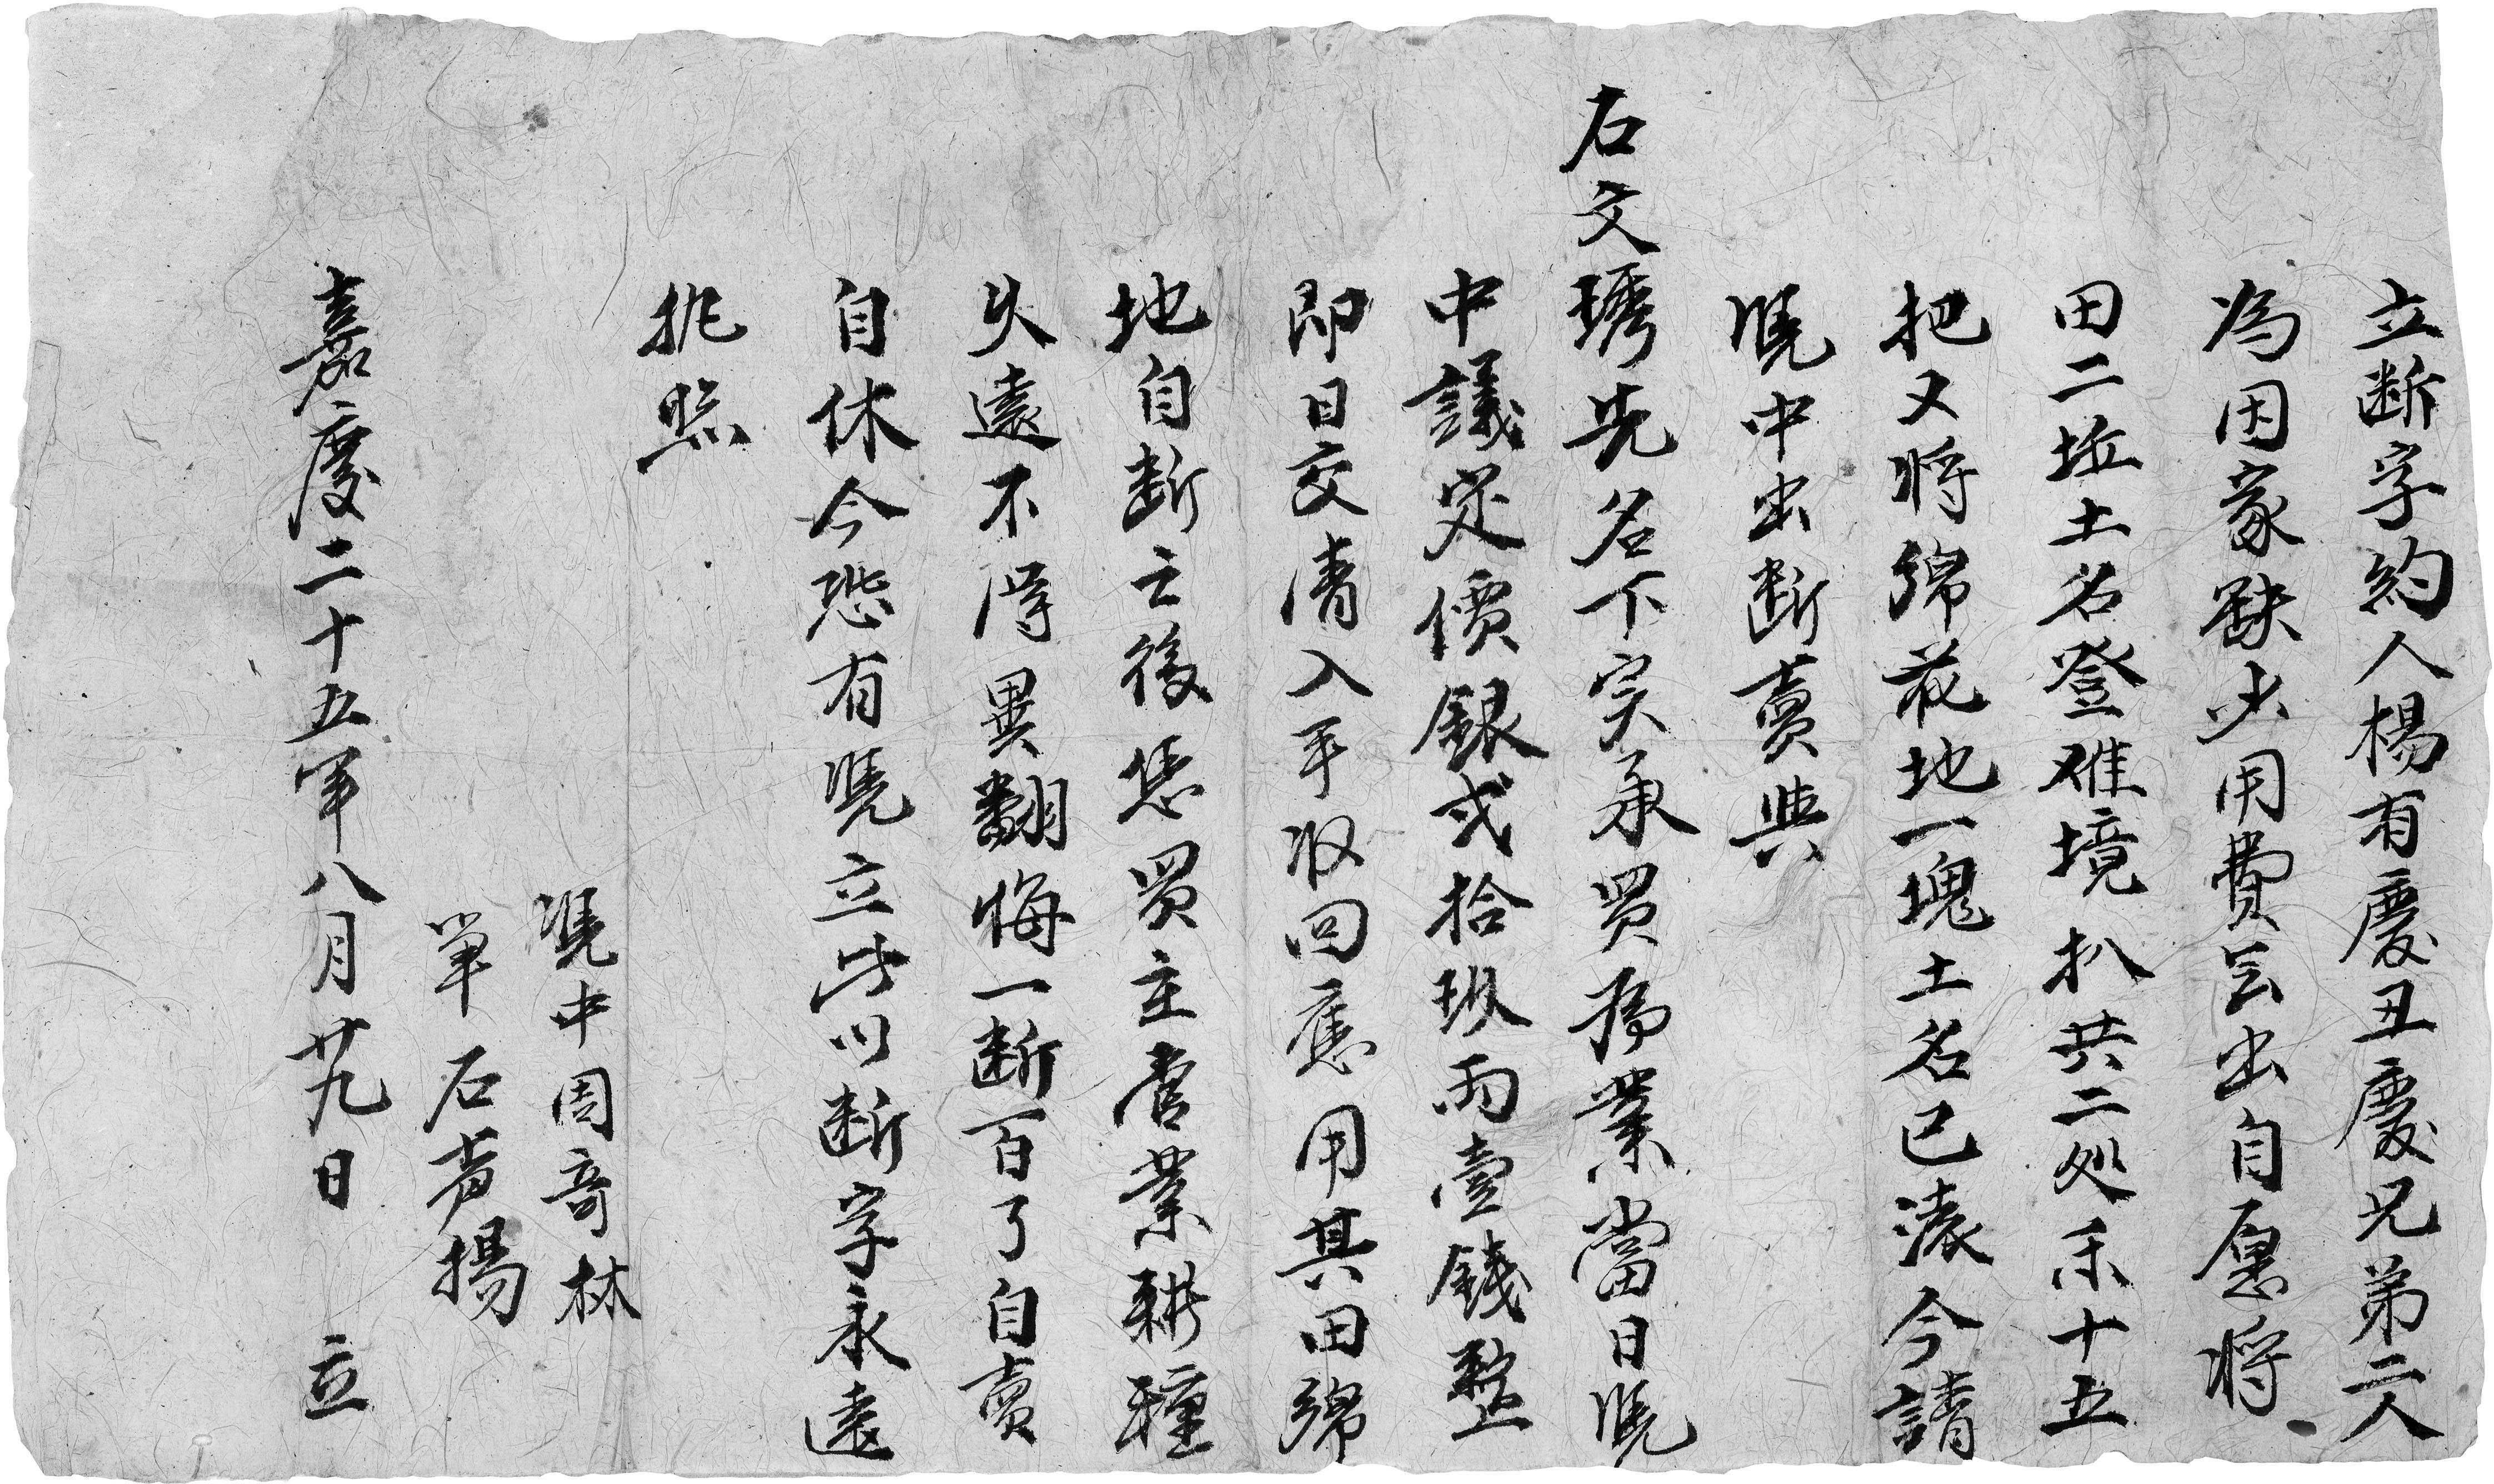 立断字約人楊有慶丑慶兄弟二人
為因家缺少用費无出自愿将
田二坵土名登难境扒共二处禾十五
把又将綿花地一塊土名已滚今請
凴中出断賣與
石文琇先名下实承買為業當日凴
中議定價銀弍拾玖両壹錢整
即日交清入手收回應用其田綿
地自断之後恁買主管業耕種
久遠不得異翻悔一断百了自賣
自休今恐有凴立此以断字永遠
执照
凴中周奇林
筆石美揚
嘉慶二十五年八月廿九日 立